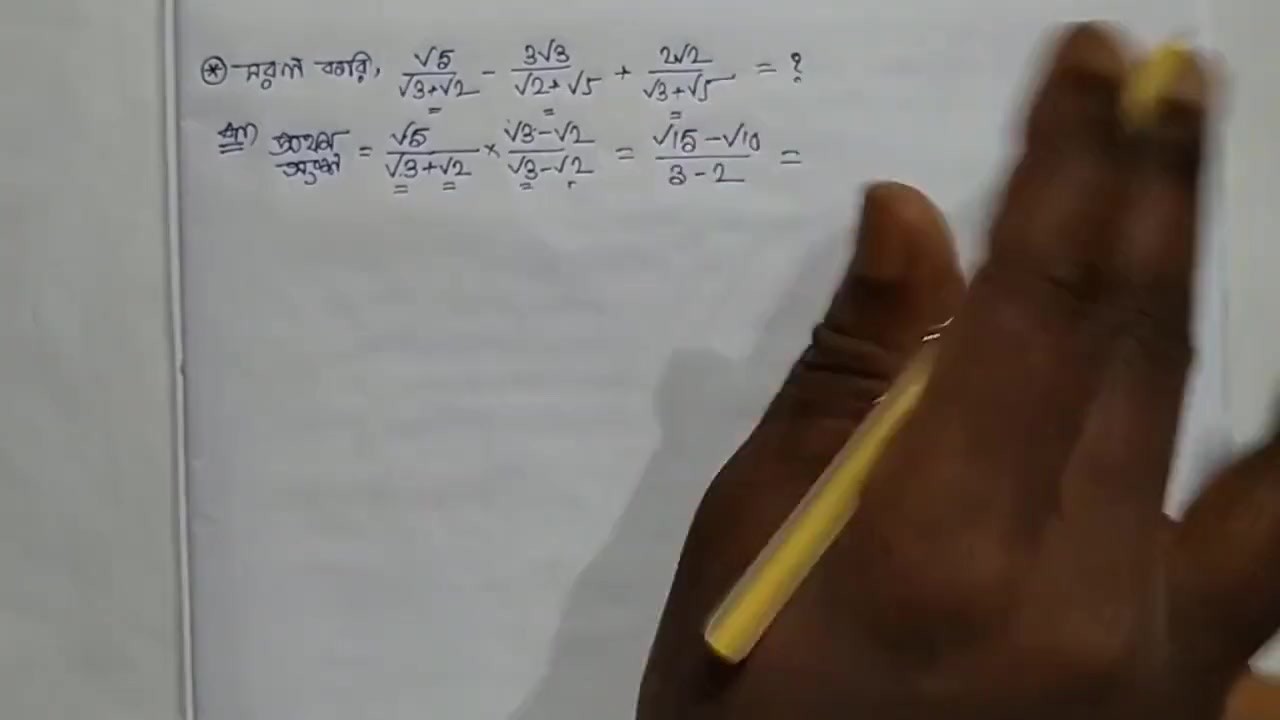 ⊛ সরল করি, √5/(√3+√2) - 3√3/(√2+√5) + 2√2/(√3+√5) = ?
প্রথম অংশ = √5/(√3+√2) × (√3-√2)/(√3-√2) = (√15-√10)/(3-2) =